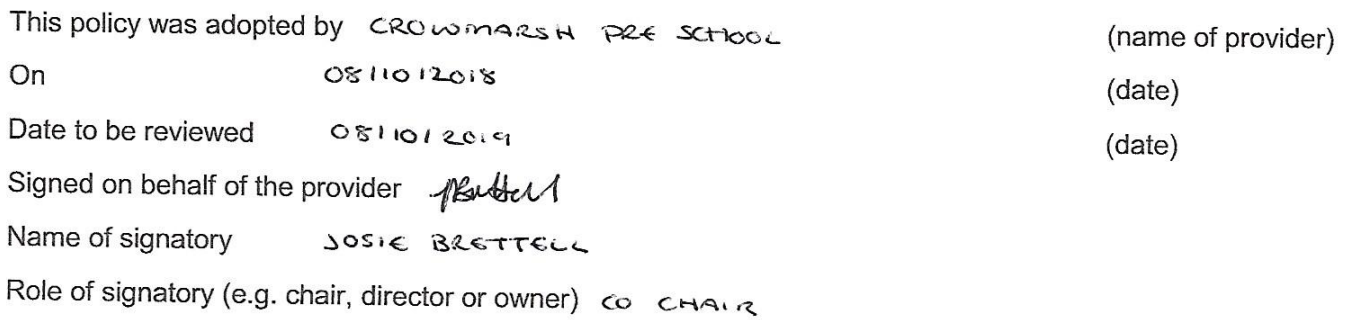 This policy was adopted by CROWMARSH PRE SCHOOL (name of provider)
On 08/10/2018 (date)
Date to be reviewed 08/10/2019 (date)
Signed on behalf of the provider JBrettell
Name of signatory JOSIE BRETTELL
Role of signatory (e.g. chair, director or owner) CO CHAIR